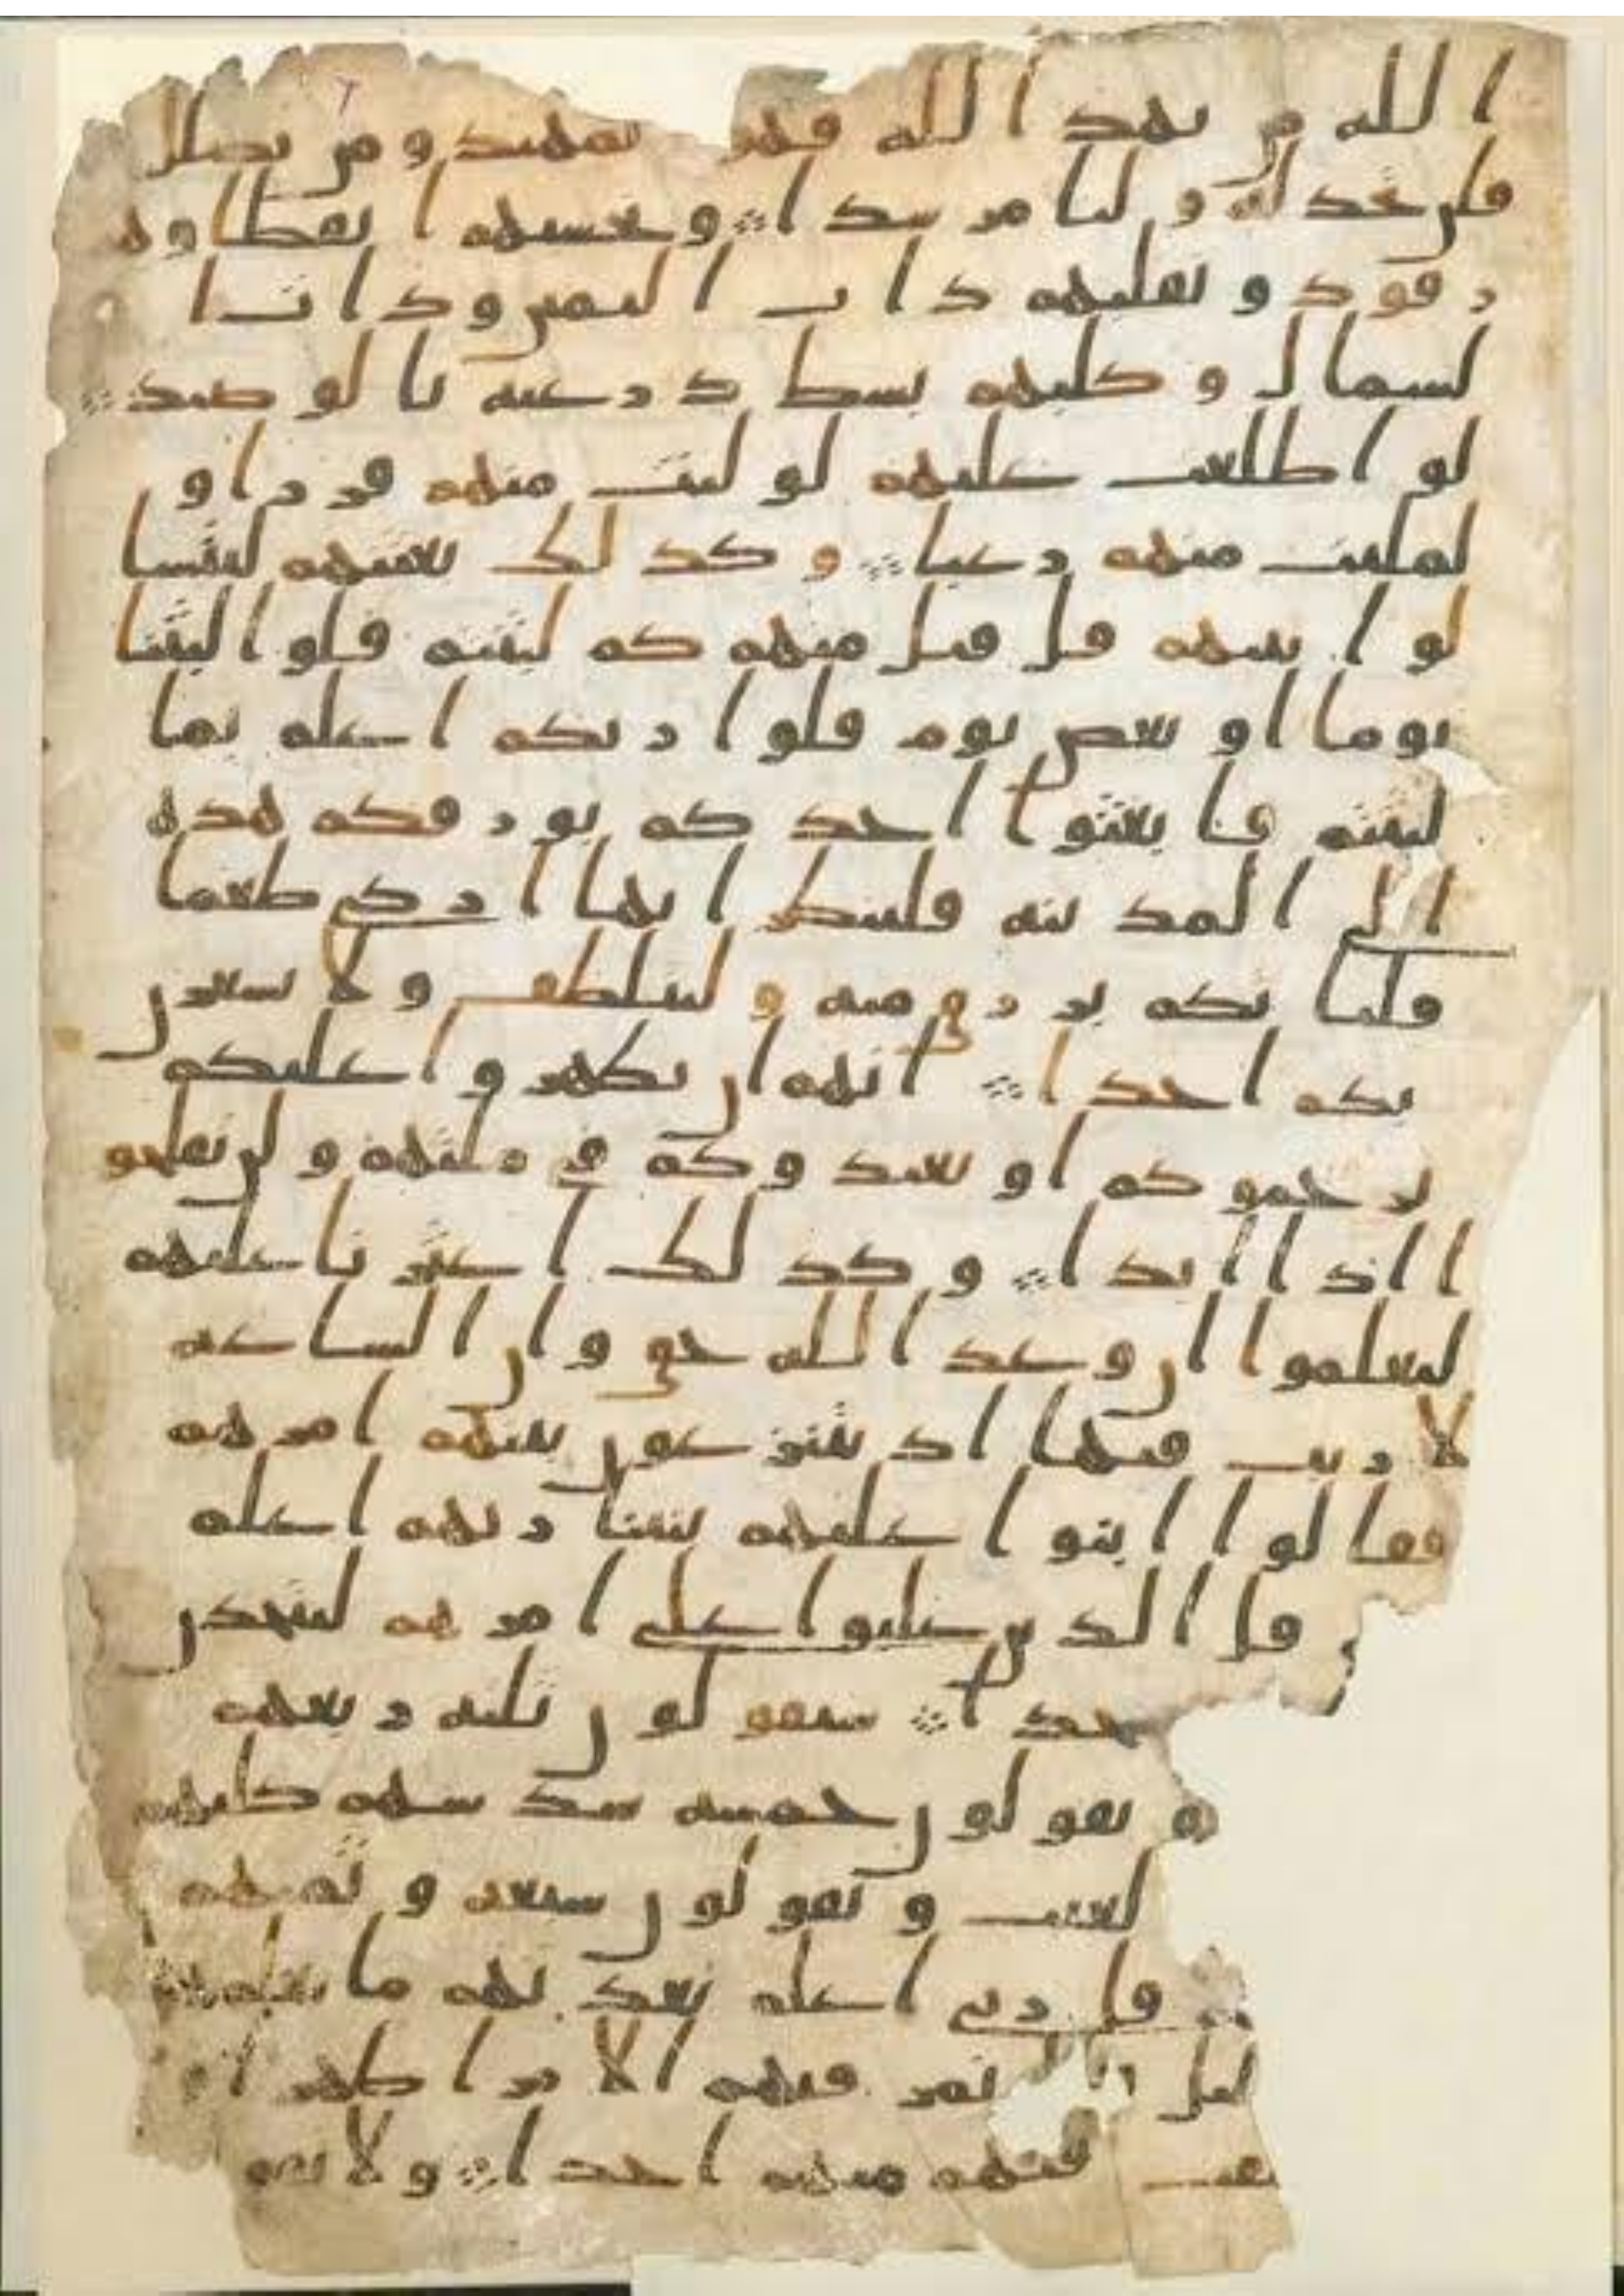 الله من يهد الله فهو المهتد ومن يضلل
فلن تجد له وليا مرشدا ۞ وتحسبهم ايقظا وهم
رقود ونقلبهم ذات اليمين وذات ا
لشمال وكلبهم بسط ذرعيه بالوصيد ۞
لو اطلعت عليهم لوليت منهم فررا و
لملیت منهم رعبا ۞ وكذلك بعثنهم ليتسا
لوا بينهم قل قيل منهم كم لبثتم قلوا لبثنا
يوما او بعض يوم قلوا ربكم اعلم بما
لبثتم فابعثوا احدكم بورقكم هذه
الى المدينه فلينظر ايها ازكى طعما
فلياتكم برزق منه وليتلطف ولا يشعرن
بكم احدا ۞ انهم ان يظهروا عليكم
يرجموكم او يعيدوكم في ملتهم ولن تفلحو
ا اذا ابدا ۞ وكذلك اعثرنا عليهم
ليعلموا ان وعد الله حق وان الساعه
لا ريب فيها اذ يتنزعون بينهم امرهم
فقالوا ابنوا عليهم بنينا ربهم اعلم
قل الذين غلبوا على امرهم لنتخذن
جدا ۞ سيقولون ثلثه ربعهم
و يقولون خمسه سدسهم كلبهم
لغيب ويقولون سبعه وثمنهم
قل ربي اعلم بعدتهم ما يعلمهم
ليل تمر فيهم الا مرا ظهرا
تفت فيهم منهم احدا ۞ ولا تقو